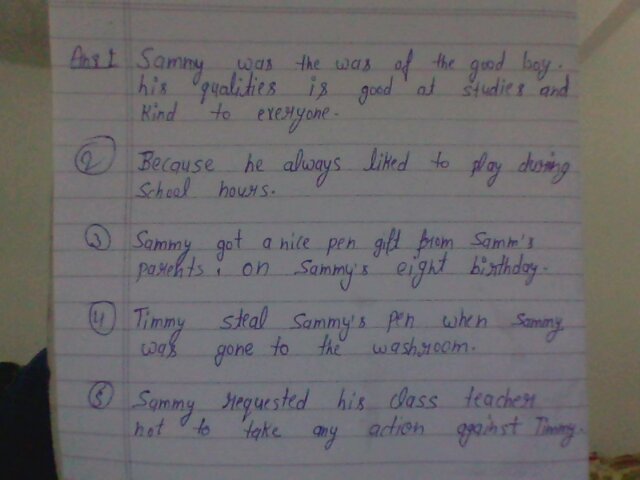 Ans 1 Sammy was the was of the good boy.
his qualities is good at studies and
kind to everyone.
2 Because he always liked to play during
School hours.
3 Sammy got a nice pen gift from Samm's
parents, on Sammy's eight birthday.
4 Timmy steal Sammy's pen when Sammy
was gone to the washroom.
5 Sammy requested his class teacher
not to take any action against Timmy.